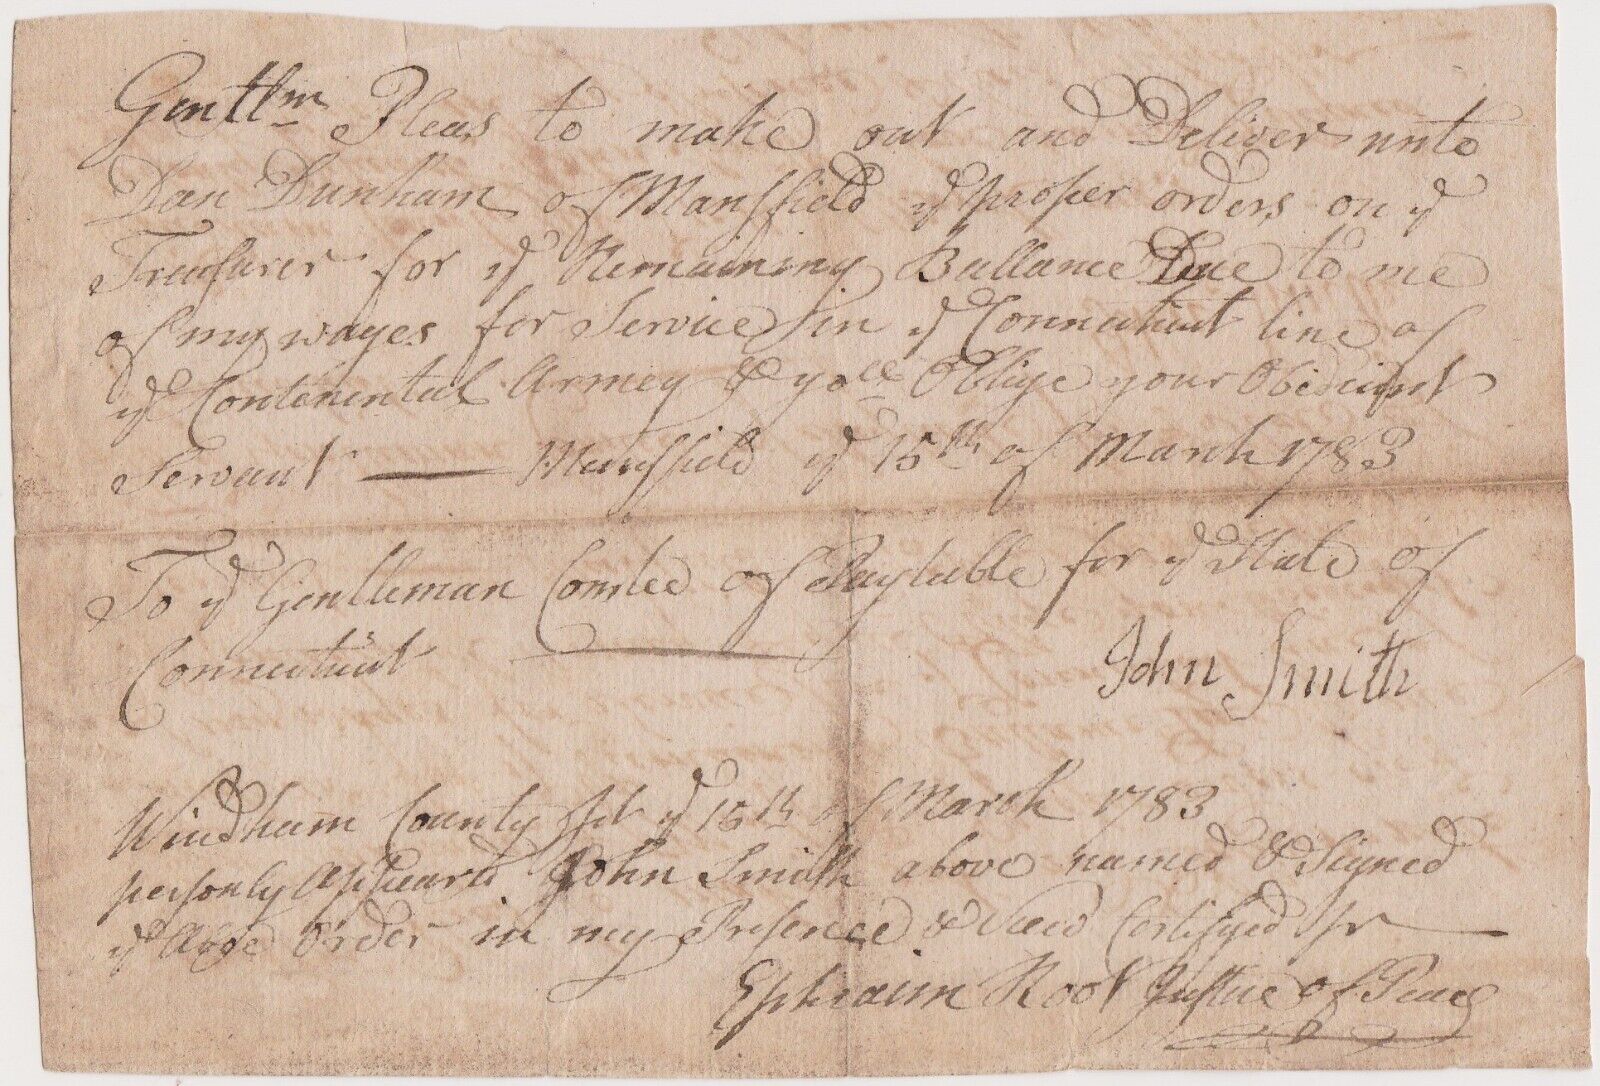 Gentlm Pleas to make out and Deliver unto
Dan Dunham of Mansfield ye proper orders on ye
Treasurer for ye Remaining Ballance Due to me
of my wages for Service in ye Connecticut line of
ye Contenental Armey & you Oblige your Obedient
Servant — Mansfield ye 15th of March 1783
To ye Gentleman Comtee of Paytable for ye State of
Connecticut
John Smith
Windham County ye 15th of March 1783
personly Appeard John Smith above named & Signed
ye Above Order in my Presence & View Certifyed pr
Ephraim Root Justice of Peace